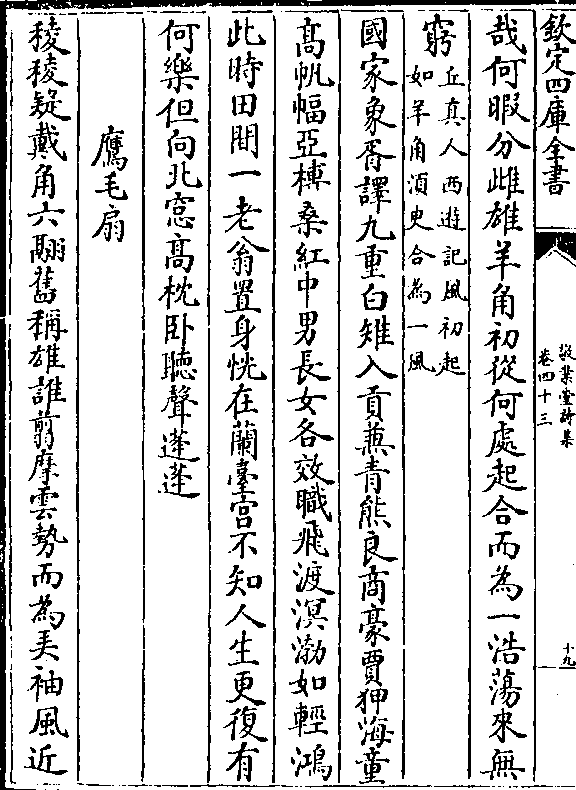 欽定四庫全書
敬業堂詩集
卷四十三
十九
哉何暇分雌雄羊角初從何處起合而為一浩蕩來無
窮
丘真人西遊記風初起
如羊角須臾合為一風
國家象胥譯九重白雉入貢兼青熊良商豪賈狎海童
髙帆幅亞榑桑紅中男長女各效職飛渡溟渤如輕鴻
此時田間一老翁置身恍在蘭臺宫不知人生更復有
何樂但向北窓髙枕卧聽聲蓬蓬
鷹毛扇
稜稜疑戴角六翮舊稱雄誰翦摩雲勢而為弄袖風近